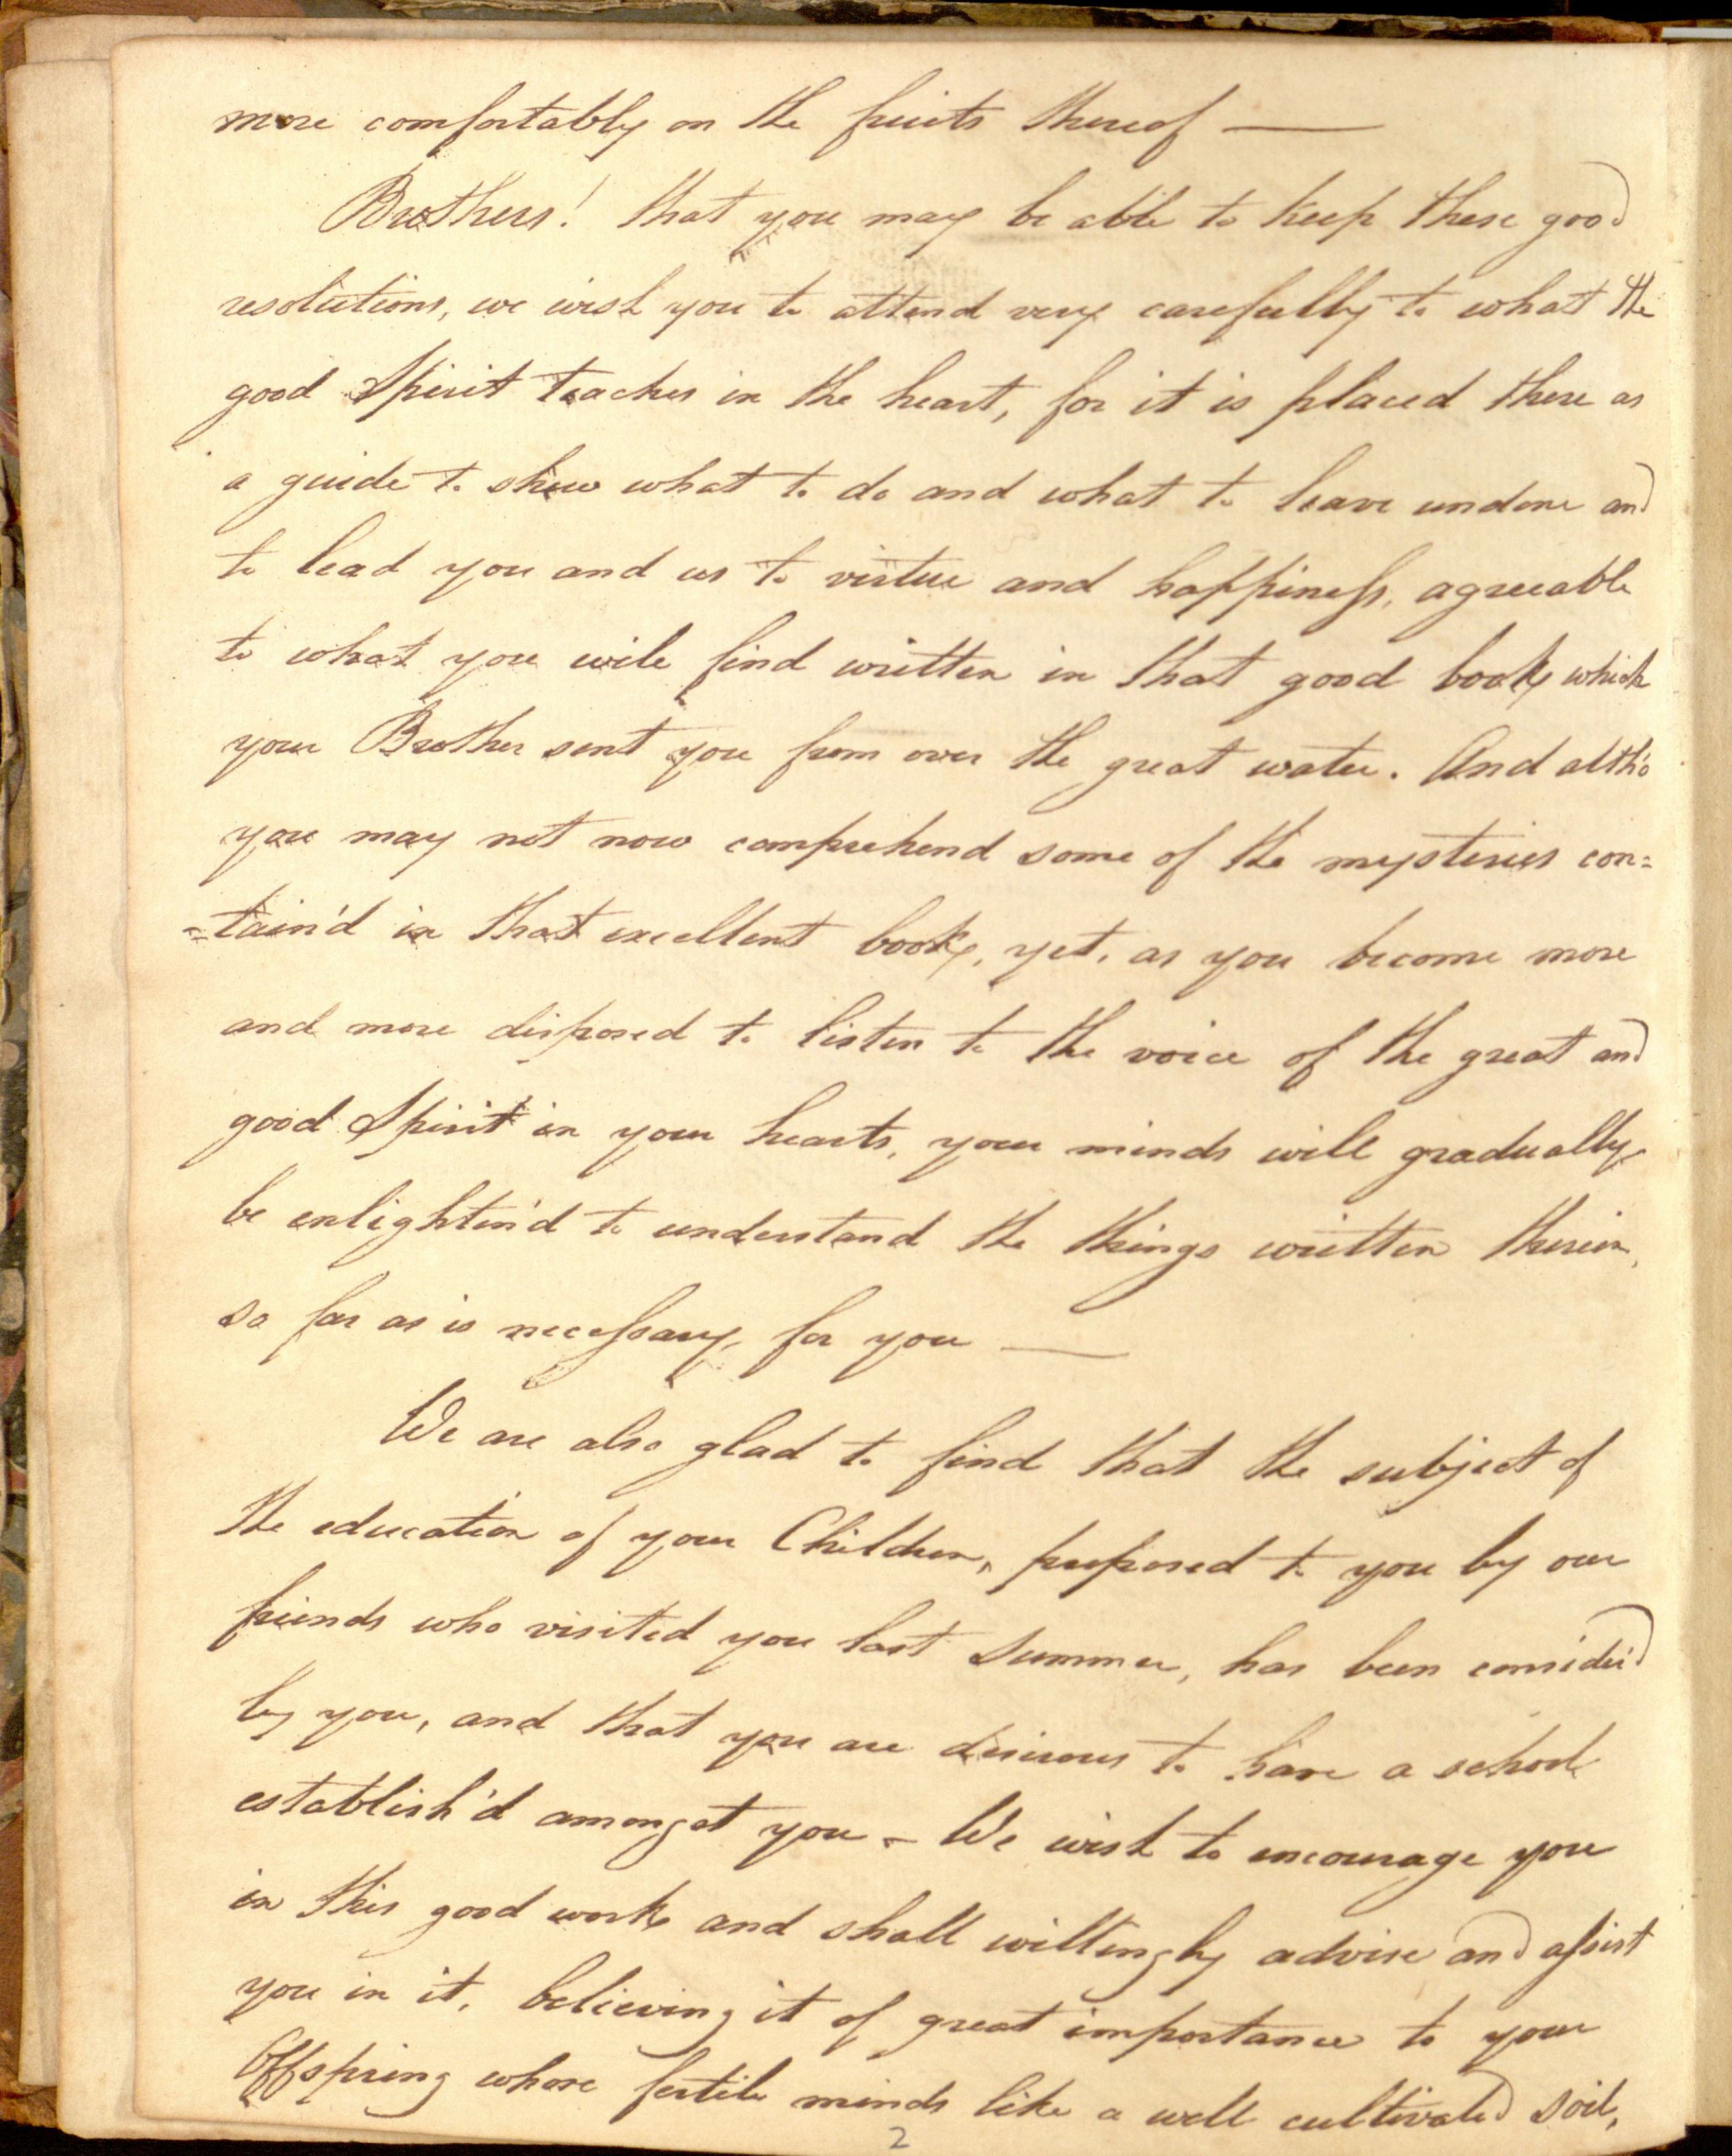 more comfortably on the fruits thereof —
Brothers! that you may be able to keep these good
resolutions, we wish you to attend very carefully to what the
good Spirit teaches in the heart, for it is placed there as
a guide to shew what to do and what to leave undone and
to lead you and us to virtue and happiness, agreeable
to what you will find written in that good book, which
your Brother sent you from over the great water. And altho'
you may not now comprehend some of the mysteries con=
=tain'd in that excellent book, yet, as you become more
and more disposed to listen to the voice of the great and
good Spirit in your hearts, your minds will gradually
be enlighten'd to understand the things written therein,
so far as is necessary for you —
We are also glad to find that the subject of
the education of your Children, proposed to you by our
friends who visited you last Summer, has been consider'd
by you, and that you are desirous to have a school
establish'd amongst you - We wish to encourage you
in this good work and shall willingly advise and assist
you in it, believing it of great importance to your
Offspring whose fertile minds like a well cultivated soil,
2